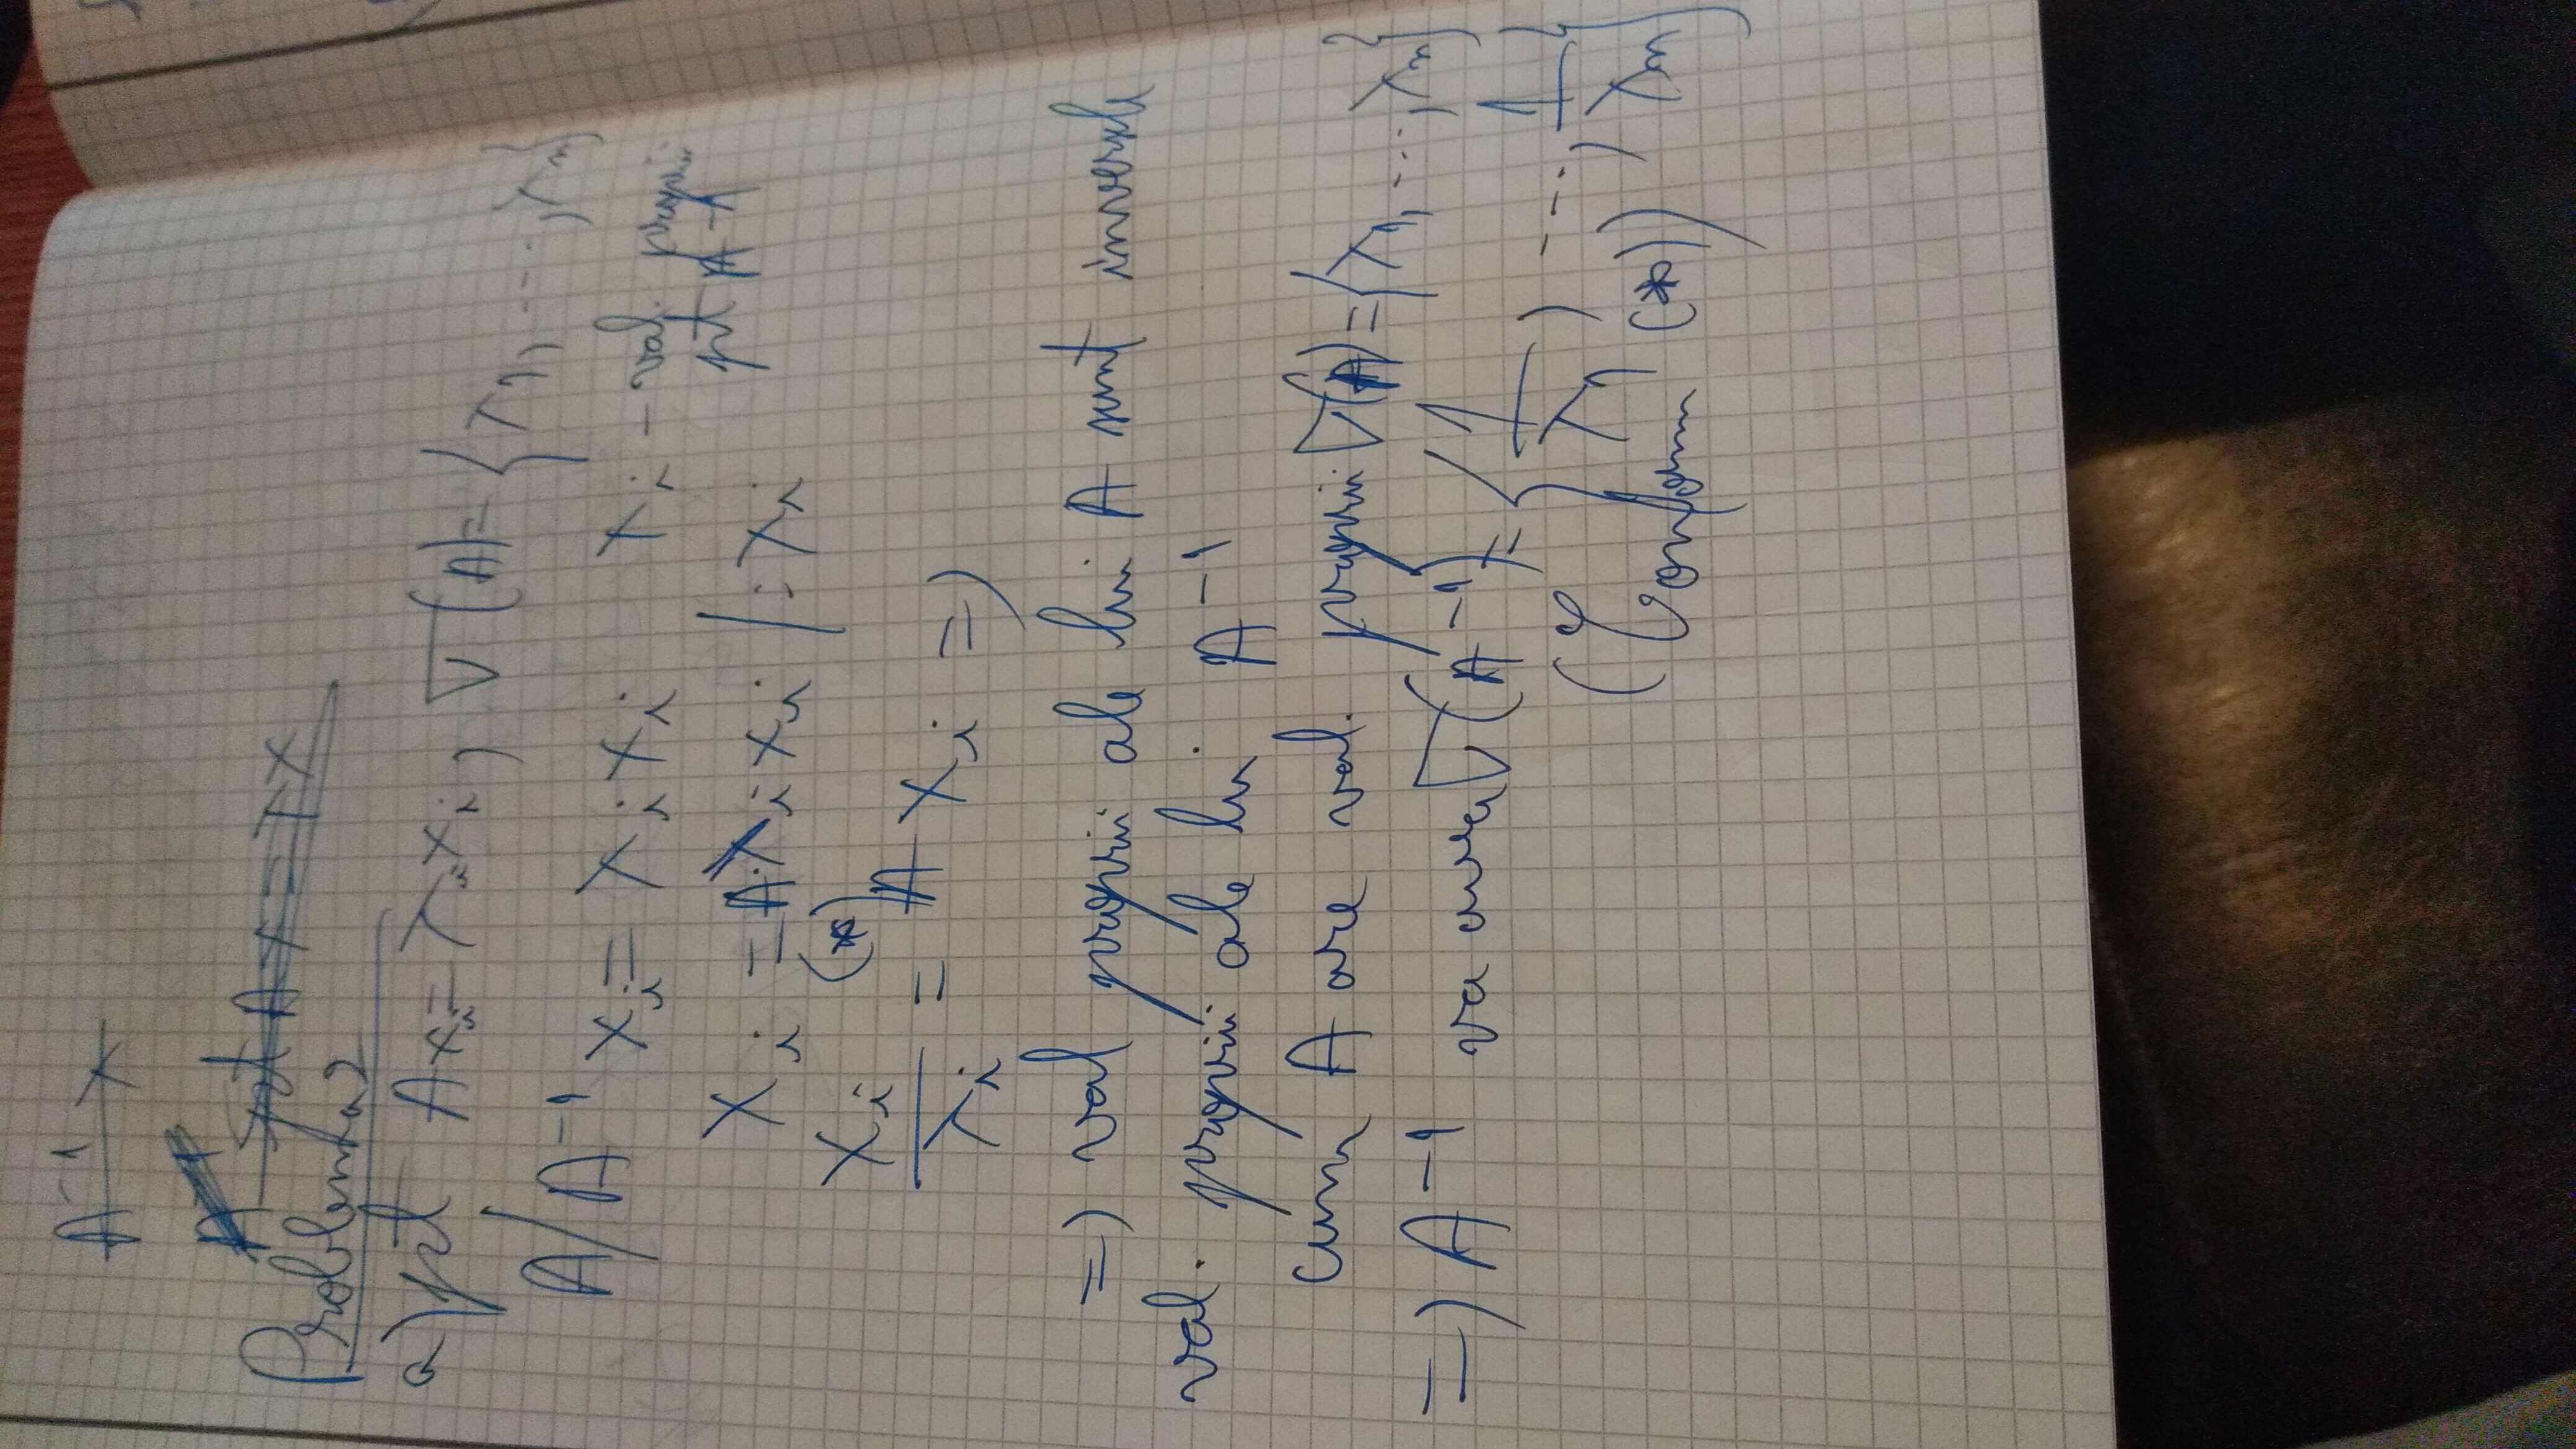 A⁻¹ λ
A⁻¹ pt Ax = λx
Problema 2
a) pt Axᵢ = λᵢxᵢ, σ(A) = {λ₁, ..., λₙ}
A/ A⁻¹ xᵢ = λᵢ xᵢ λᵢ - val. proprii
pt A⁻¹
xᵢ = A·λᵢ xᵢ / : λᵢ
xᵢ/λᵢ =(*) A xᵢ =>
=> val proprii ale lui A sunt inversele
val. proprii ale lui A⁻¹
cum A are val. proprii σ(A) = {λ₁, ..., λₙ}
=> A⁻¹ va avea σ(A⁻¹) = {1/λ₁, ..., 1/λₙ}
(Conform (*))